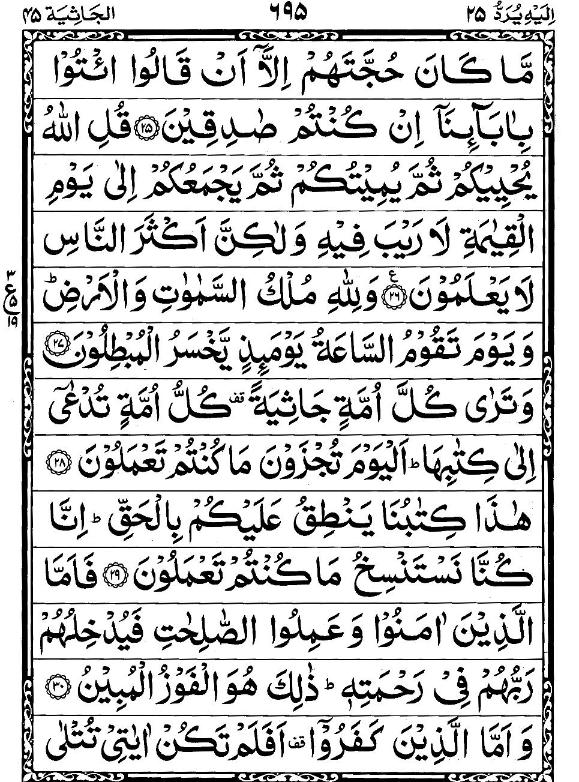 اِلَيْهِ يُرَدُّ ٢٥ ٦٩٥ الجاثية ٤٥
مَّا كَانَ حُجَّتَهُمْ اِلَّاۤ اَنْ قَالُوا ائْتُوْا
بِاٰبَآئِنَاۤ اِنْ كُنْتُمْ صٰدِقِيْنَ ۝٢٥ قُلِ اللهُ
يُحْيِيْكُمْ ثُمَّ يُمِيْتُكُمْ ثُمَّ يَجْمَعُكُمْ اِلٰى يَوْمِ
الْقِيٰمَةِ لَا رَيْبَ فِيْهِ وَلٰكِنَّ اَكْثَرَ النَّاسِ
لَا يَعْلَمُوْنَ ۝٢٦ ع وَلِلّٰهِ مُلْكُ السَّمٰوٰتِ وَالْاَرْضِ ؕ
٣ ع ٥ ١٩
وَيَوْمَ تَقُوْمُ السَّاعَةُ يَوْمَئِذٍ يَّخْسَرُ الْمُبْطِلُوْنَ ۝٢٧
وَتَرٰى كُلَّ اُمَّةٍ جَاثِيَةً قف كُلُّ اُمَّةٍ تُدْعٰۤى
اِلٰى كِتٰبِهَا ؕ اَلْيَوْمَ تُجْزَوْنَ مَا كُنْتُمْ تَعْمَلُوْنَ ۝٢٨
هٰذَا كِتٰبُنَا يَنْطِقُ عَلَيْكُمْ بِالْحَقِّ ؕ اِنَّا
كُنَّا نَسْتَنْسِخُ مَا كُنْتُمْ تَعْمَلُوْنَ ۝٢٩ فَاَمَّا
الَّذِيْنَ اٰمَنُوْا وَعَمِلُوا الصّٰلِحٰتِ فَيُدْخِلُهُمْ
رَبُّهُمْ فِيْ رَحْمَتِهٖ ؕ ذٰلِكَ هُوَ الْفَوْزُ الْمُبِيْنُ ۝٣٠
وَاَمَّا الَّذِيْنَ كَفَرُوْۤا قف اَفَلَمْ تَكُنْ اٰيٰتِيْ تُتْلٰى